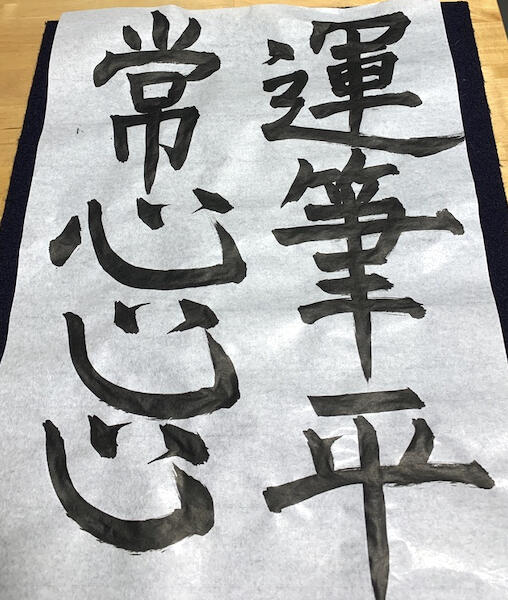 運筆平
常心心心